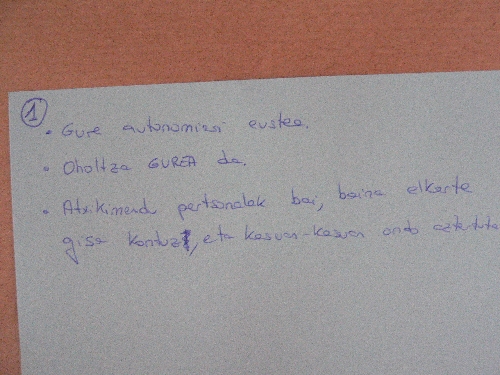 1
• Gure autonomiari eustea.
• Oholtza GUREA da.
• Atxikimendu pertsonalak bai, baina elkarte
gisa kontuz, eta kasuan-kasuan ondo aztertuta